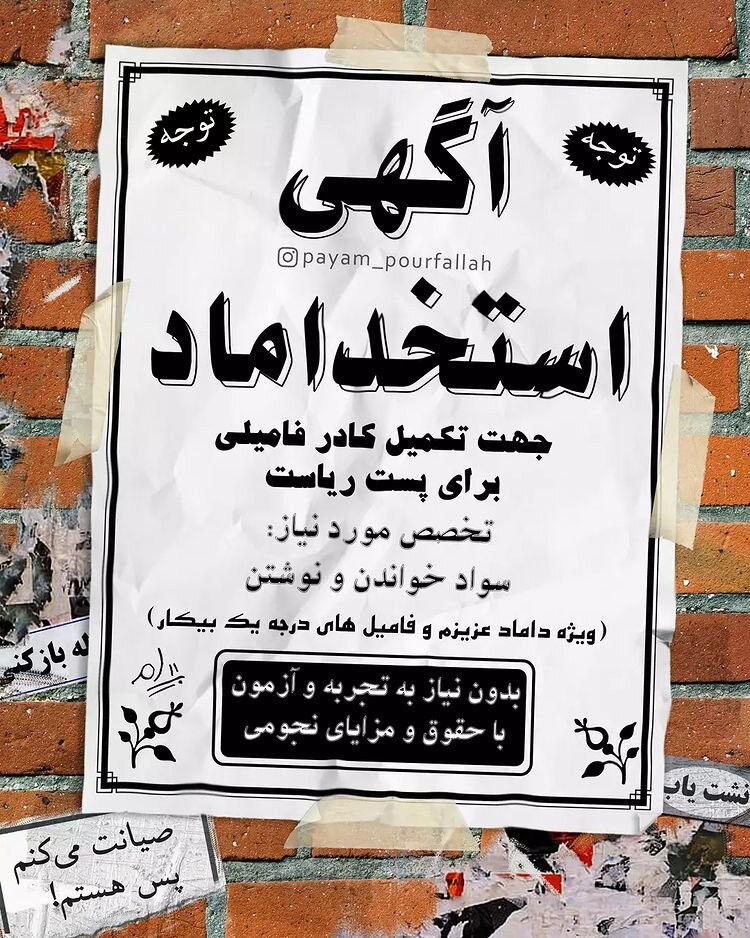 توجه
توجه
آگهی
payam_pourfallah
استخداماد
جهت تکمیل کادر فامیلی
برای پست ریاست
تخصص مورد نیاز:
سواد خواندن و نوشتن
(ویژه داماد عزیزم و فامیل های درجه یک بیکار)
بدون نیاز به تجربه و آزمون
با حقوق و مزایای نجومی
له بازکنی
نشت یاب
صیانت می‌کنم
پس هستم!